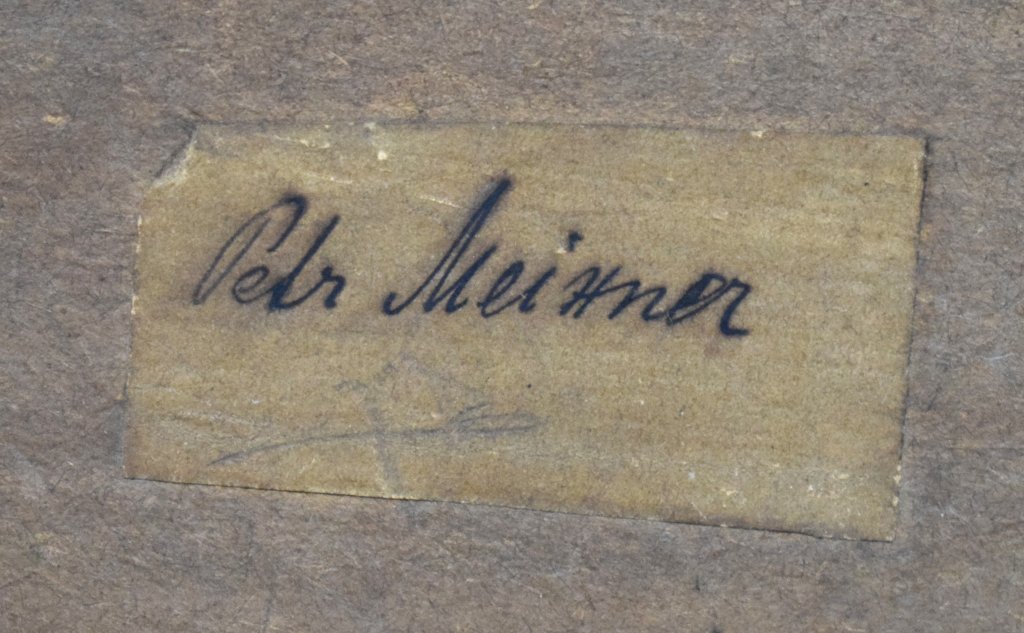 Petr Meixner